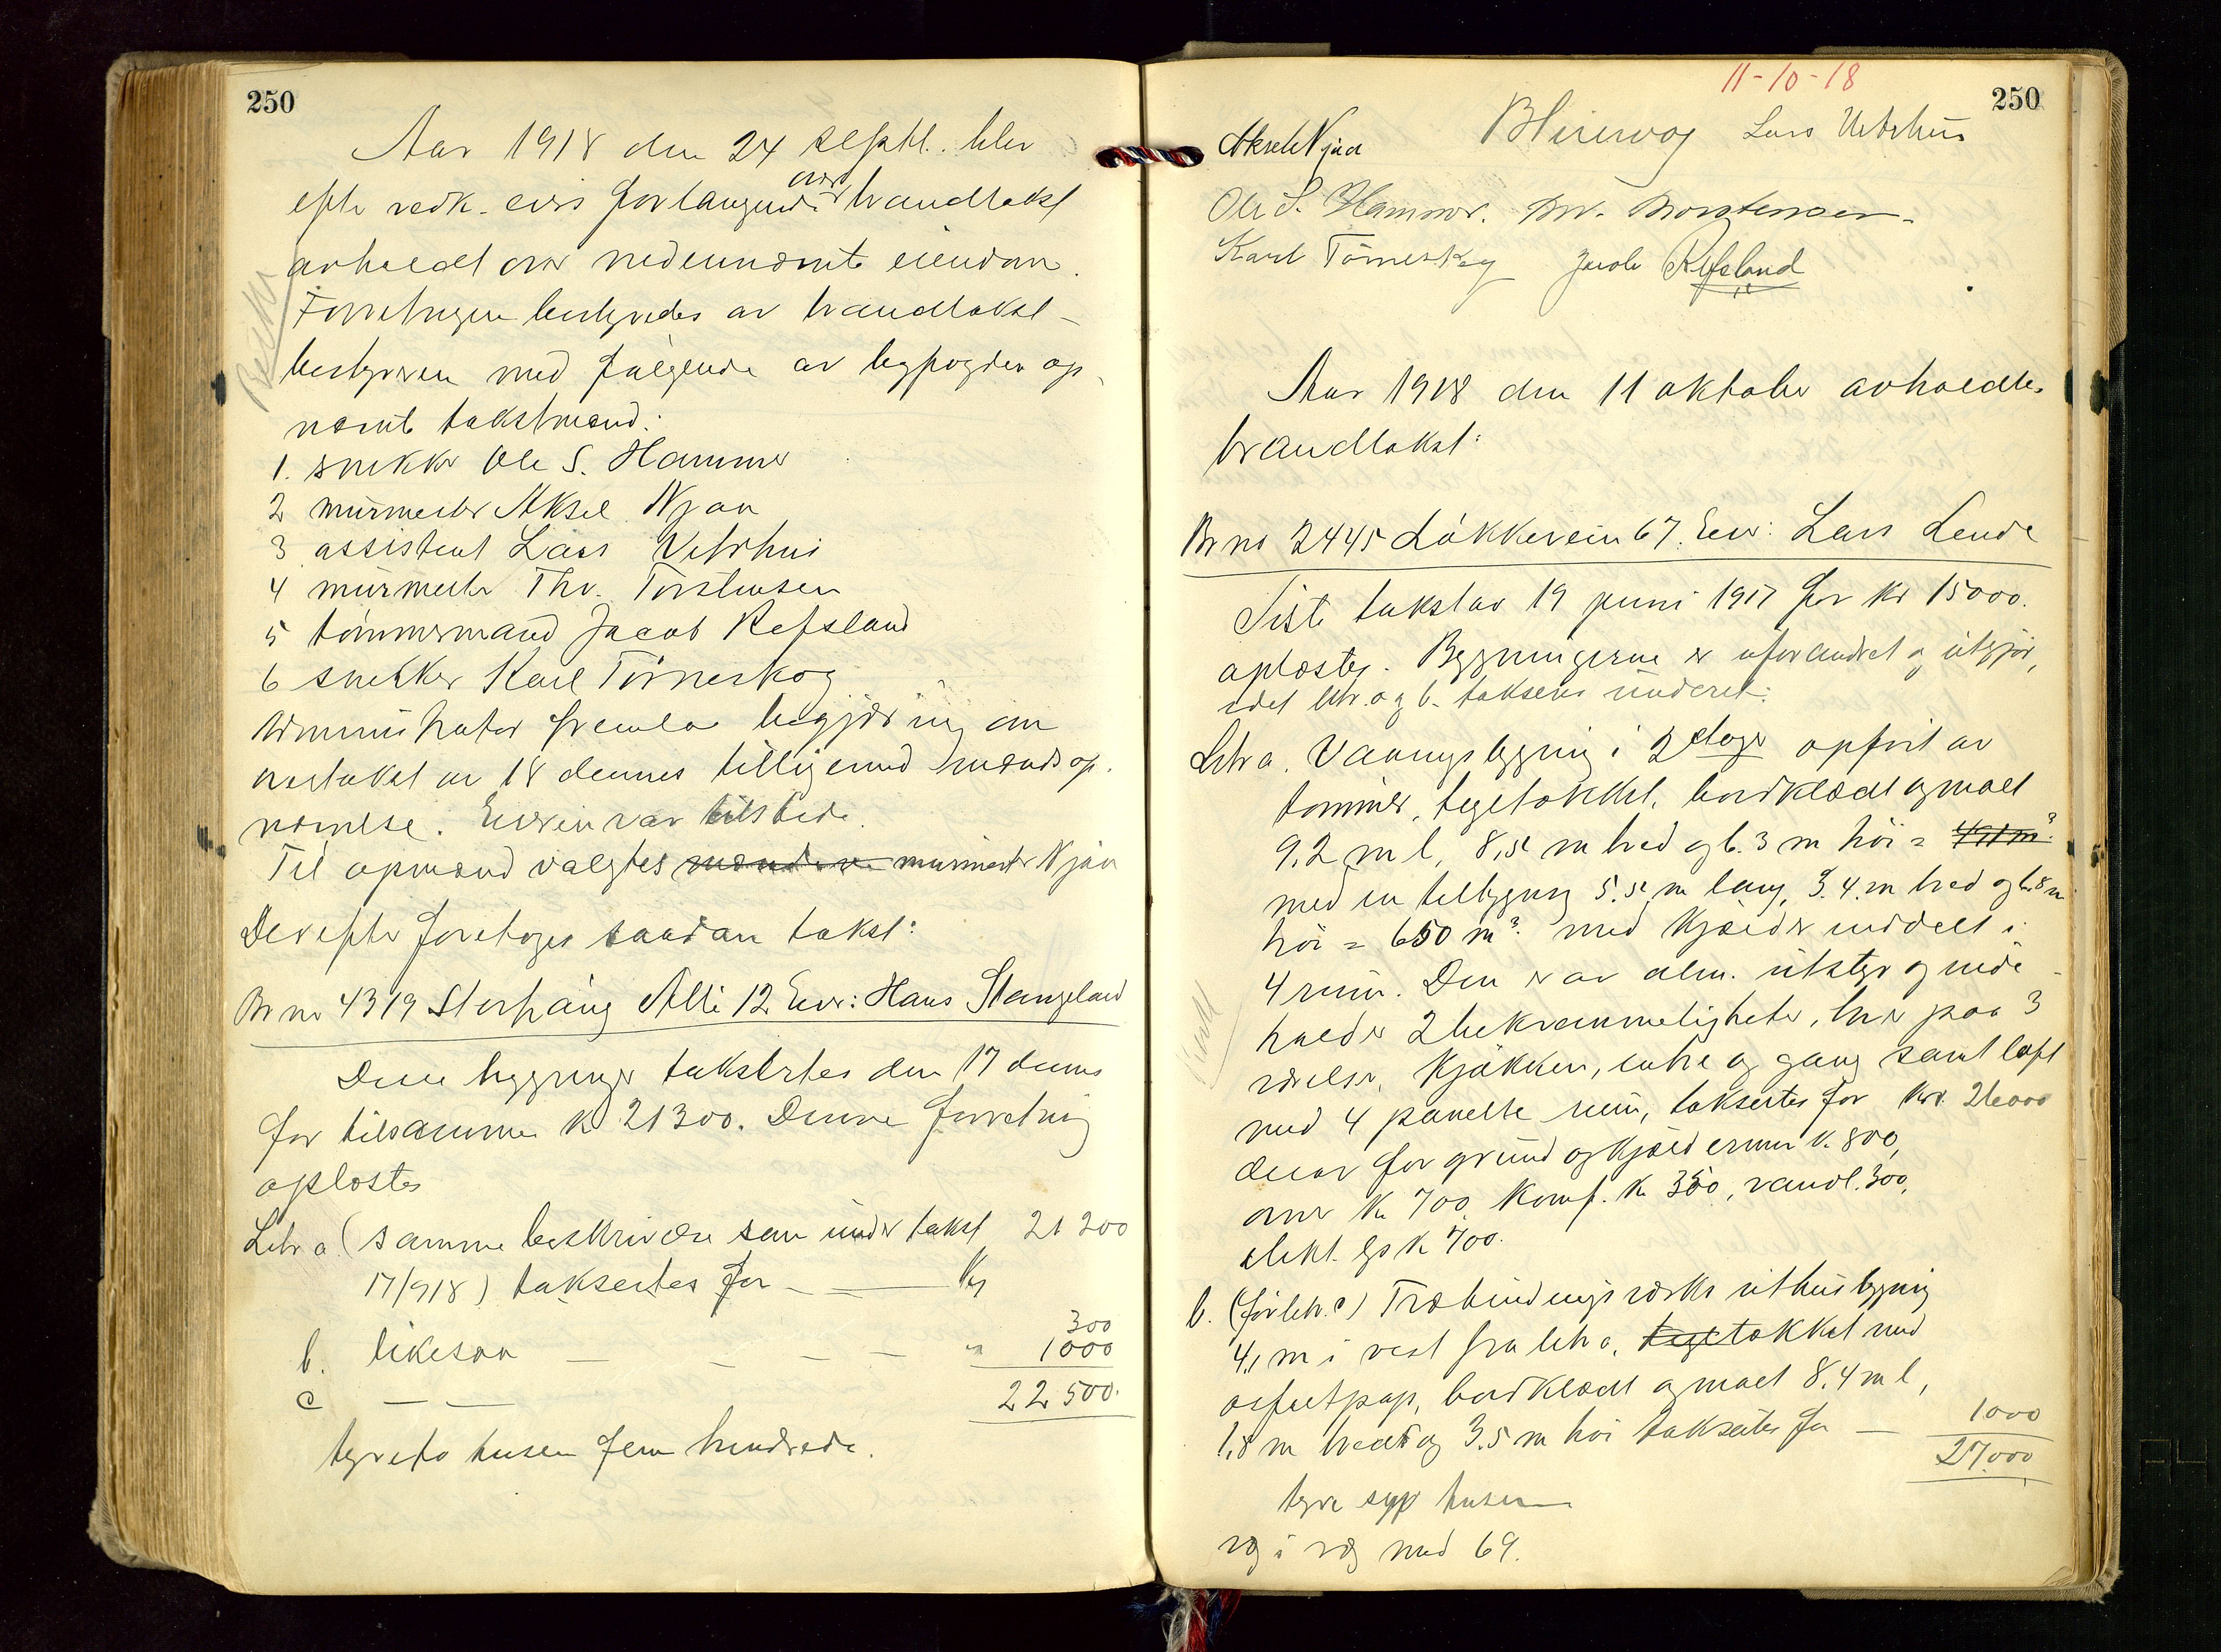 250
Aar 1918 den 24 septbr. blev
efter vedk. eiers forlangende over brandtakst
avholdt over nedennævnte eiendom.
Forretningen bestyredes av brandtakst-
bestyreren med følgende av byfogden op-
nævnte takstmænd:
1. snekker Ole S. Hammer
2 murmester Aksel Njaa
3 assistent Lars Vetrhus
4 murmester Thv. Torstensen
5 tømmermand Jacob Refsland
6 snekker Karl Tørneskog
Administrator fremla begjæring om
av 18 dennes tillikemed mænds op-
nævnelse. Eieren var tilstede.
Til opmand valgtes murmester Njaa
Derefter foretoges saadan takst:
Br no 4319 Storhaug Allé 12 Eier: Hans Stangeland
Disse bygninger taksertes den 17 dennes
for tilsammen kr 21300. Denne forretning
oplæstes
Litr a (samme beskrivelse som under takst 21 200
17/918) taksertes for — — Kr
b. likesaa — — — — " 300
c — — 1000
22 500.
tyveto tusen fem hundrede.
11-10-18
250
Aksel Njaa Lars Vetrhus
Ole S. Hammer. Thv. Torstensen.
Karl Tørneskog Jacob Refsland
Aar 1918 den 11 oktober avholdtes
brandtakst:
Br no 2445 Løkkeveien 67. Eier: Lars Lende
Siste takst av 19 juni 1917 for kr 15000.
oplæstes. Bygningerne er uforandret og utgjør,
idet litr. a og b. takseres underet:
Litr a. Vaaningsbygning i 2 etager opført av
tømmer, teglstækket, bordklædt og malt
9,2 m l, 8,5 m bred og 6.3 m høi = 491 m³
med en tilbygning 5.5 m lang, 3.4 m bred og 6.8 m
høi = 650 m³ med kjælder inddelt i
4 rum. Den er av alm. utstyr og inde-
holder 2 bekvemmeligheter, hver paa 3
værelser, kjøkken, entre og gang samt loft
med 4 panelte rum, taksertes for kr. 26000
derav for grund og kjældermur k. 800,
ovner kr 700, komf. kr 350, vandl. 300,
elekt. lys kr 700.
b. (før litr. c) Træbindingsverks uthusbygning
4,1 m i vest fra litr a, tegltækket med
asfaltpap, bordklædt og malt 8.4 m l,
1,8 m bredt og 3.5 m høi taksertes for — 1000
27.000
tyve syv tusen
væg i væg med 69.